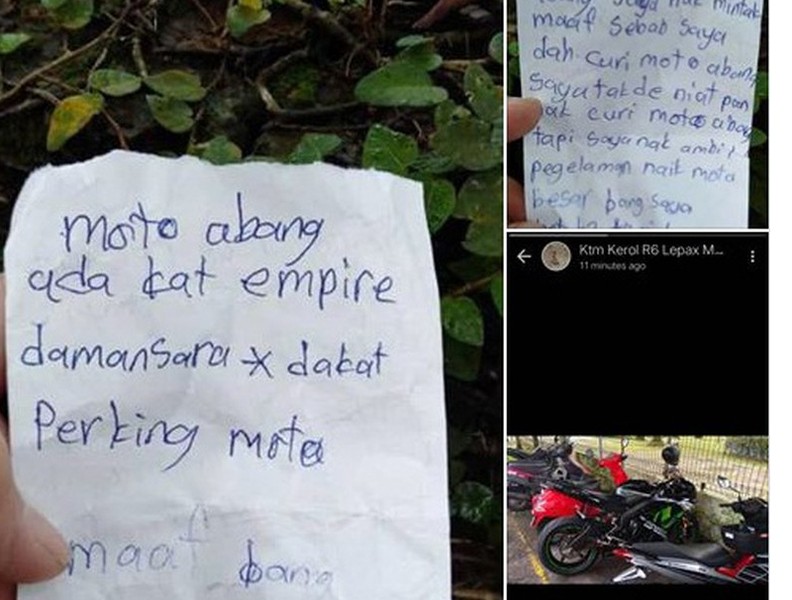 moto abang
ada kat empire
damansara x dakat
Perking moto
maaf bang
maaf sebab saya
dah curi moto abang
saya tak de niat pon
nak curi moto abang
tapi saya nak ambil
pegelaman naik mota
besar bang saya
Ktm Kerol R6 Lepax M...
11 minutes ago